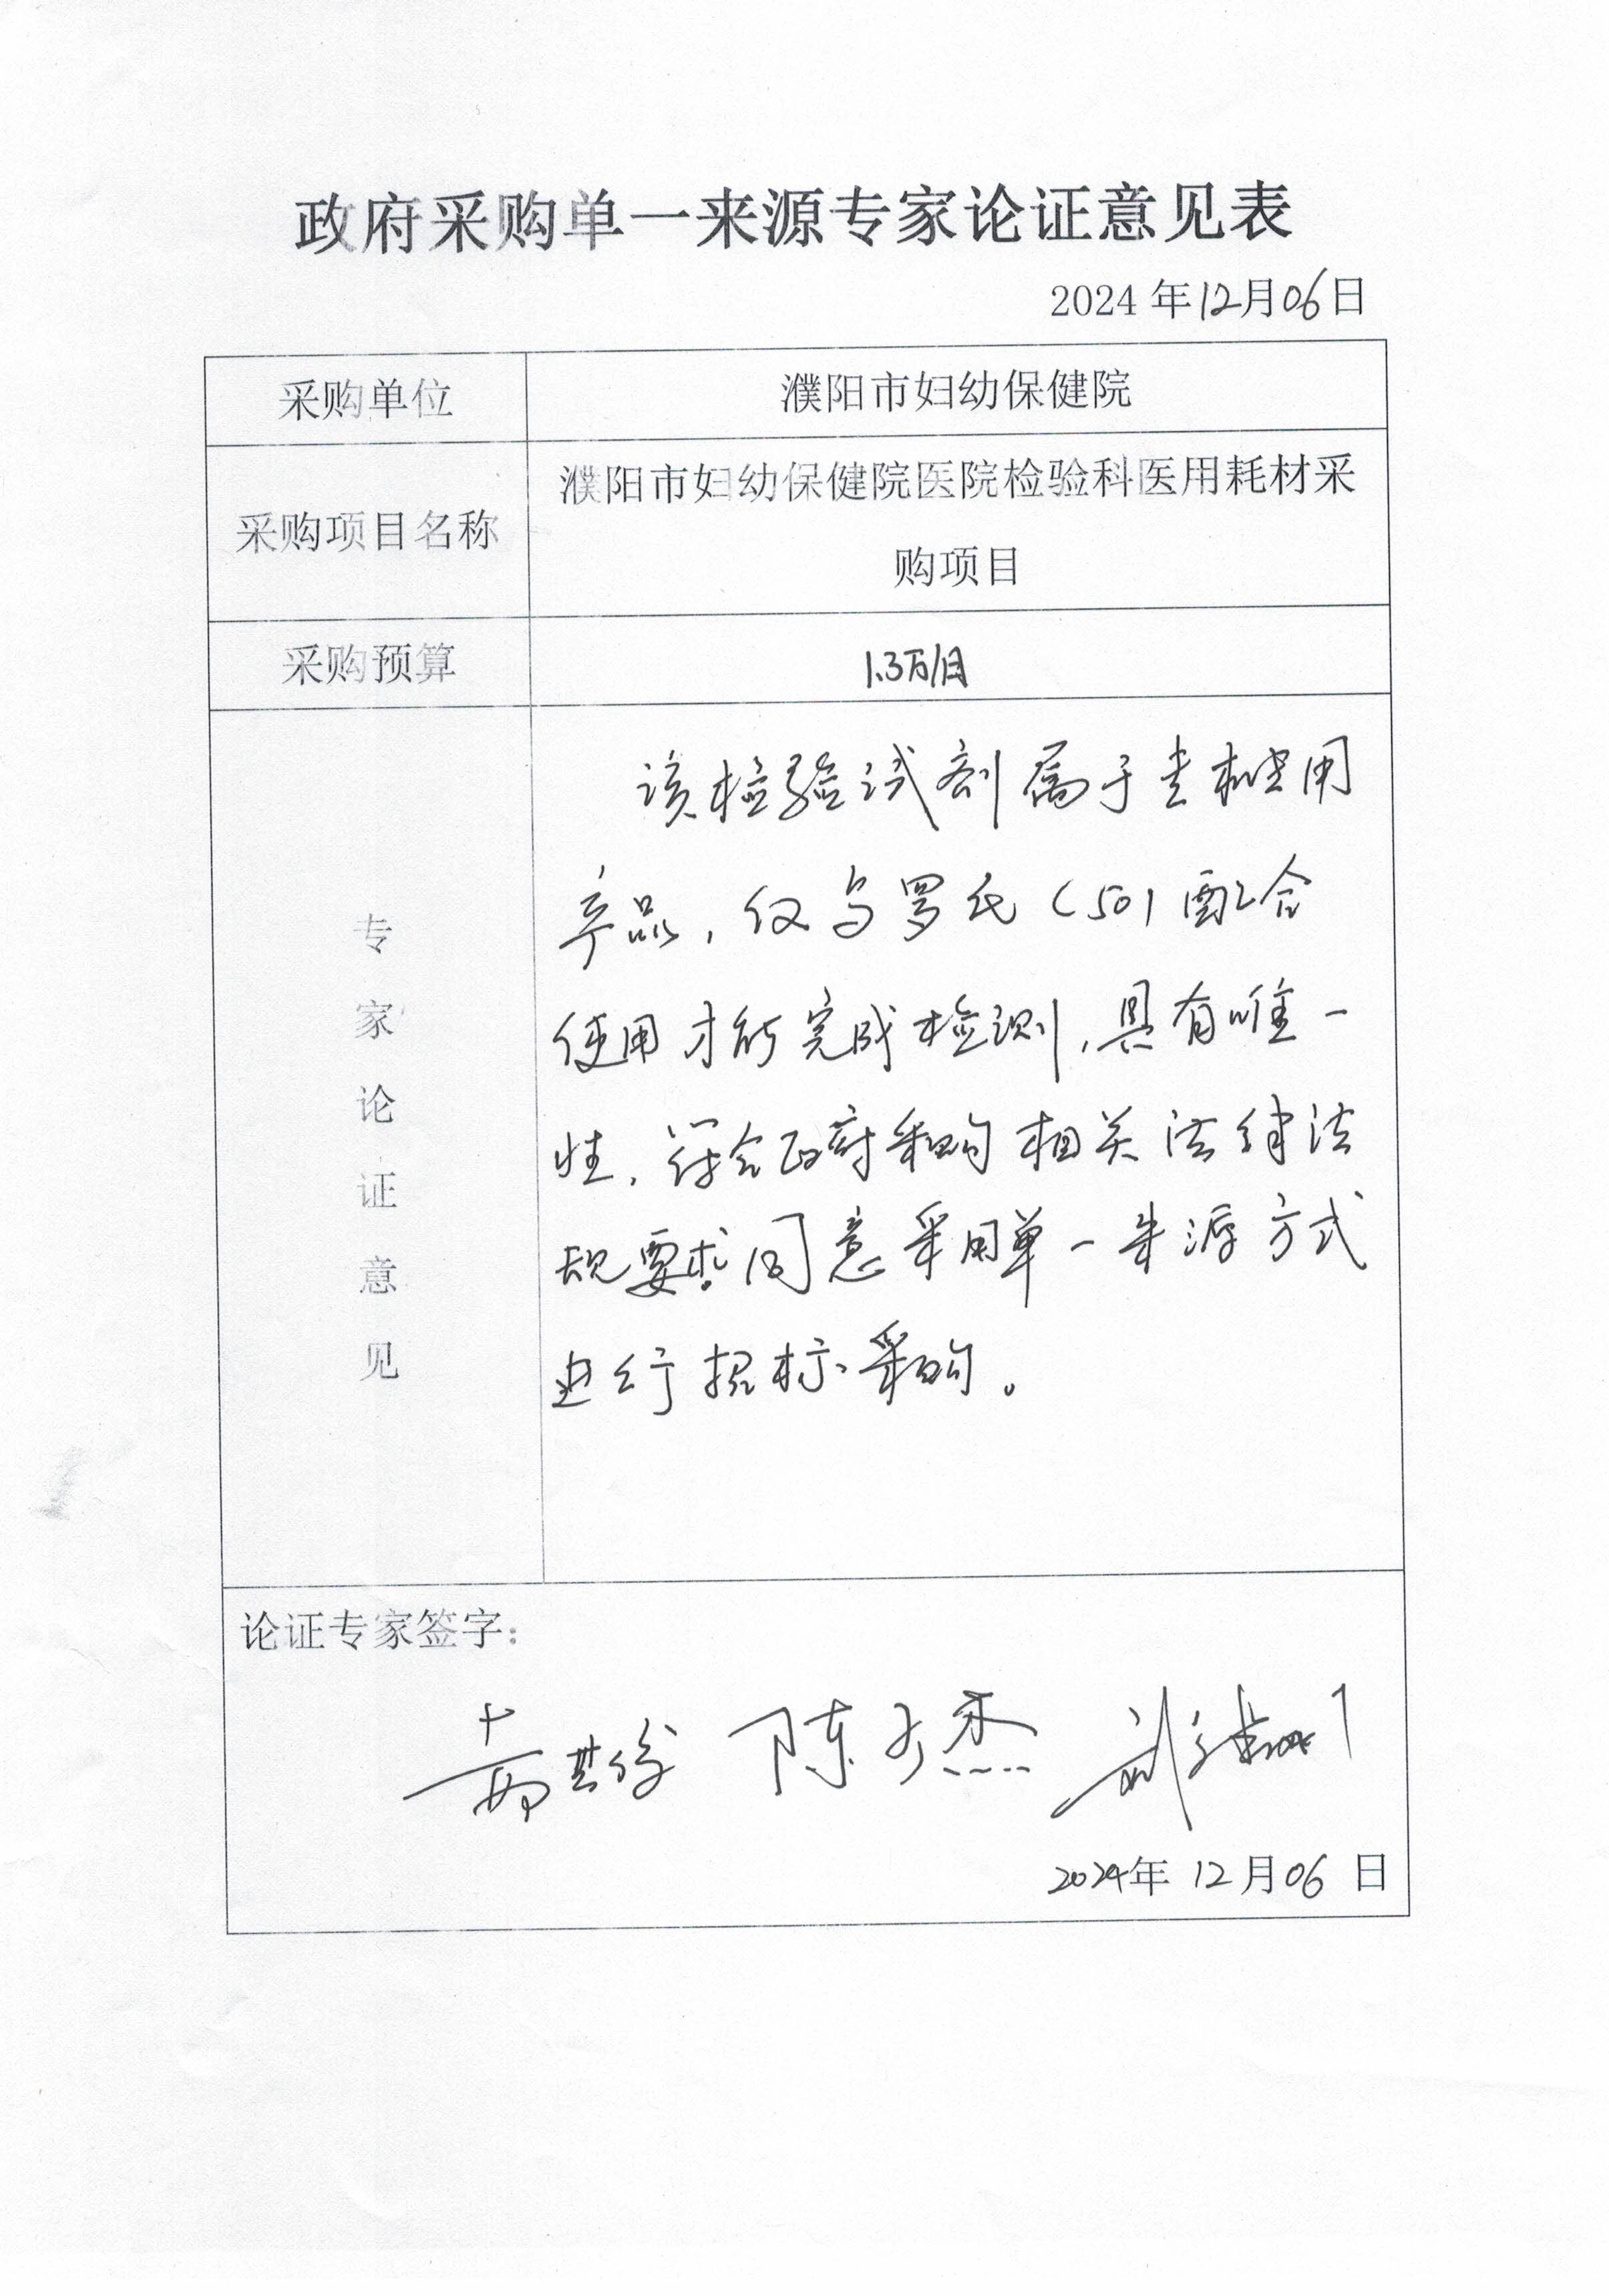 政府采购单一来源专家论证意见表
2024年12月06日
采购单位
濮阳市妇幼保健院
采购项目名称
濮阳市妇幼保健院医院检验科医用耗材采
购项目
采购预算
1.3万/月
专家论证意见
该检验试剂属于专机专用
产品,仅与罗氏C501配合
使用才能完成检测,具有唯一
性,符合政府采购相关法律法
规要求。同意采用单一来源方式
进行招标采购。
论证专家签字:
陈子杰
2024年12月06日